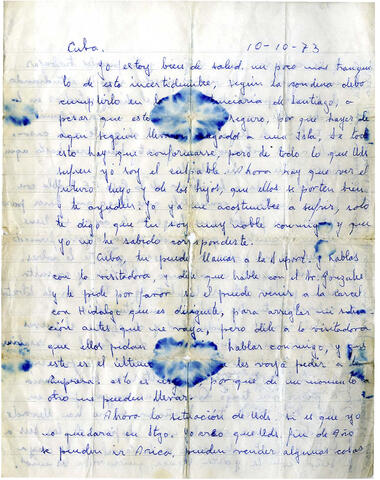 Cuba. 10-10-73
Yo estoy bien de salud, un poco más tranqui
lo de esta incertidumbre, según la condena debo
cumplirla en la nciaria de Santiago, a
pesar que esto seguro, por que hayer de
aquí seguían llevan gados a una Isla. De todo
esto hay que conformarse, pero de todo lo que Uds
sufren yo soy el culpable. Ahora hay que ver el
futuro tuyo y de los hijos, que ellos se porten bien
y te ayuden. Yo ya me acostumbre a sufrir, solo
te digo que tu soy muy noble conmigo y que
yo no he sabido corresponderte.
Cuba, tu puedes llamar a la Hablas
con la visitadora, y dile que hable con el Sr. González
y le pide por favor si el puede venir a la carcel
con Hidalgo que es dirigente, para arreglar mi situa
ción antes que me vaya, pero dile a la visitadora
que ellos pidan hablar conmigo, y
este es el último les voy a pedir a la
Empresa. esto es ur por que de un momento a
otro me pueden llevar.
Ahora la situación de Uds. si es que yo
no quedara en Stgo. Yo creo que Uds. fin de año
se pueden ir Arica, pueden vender algunas cosas